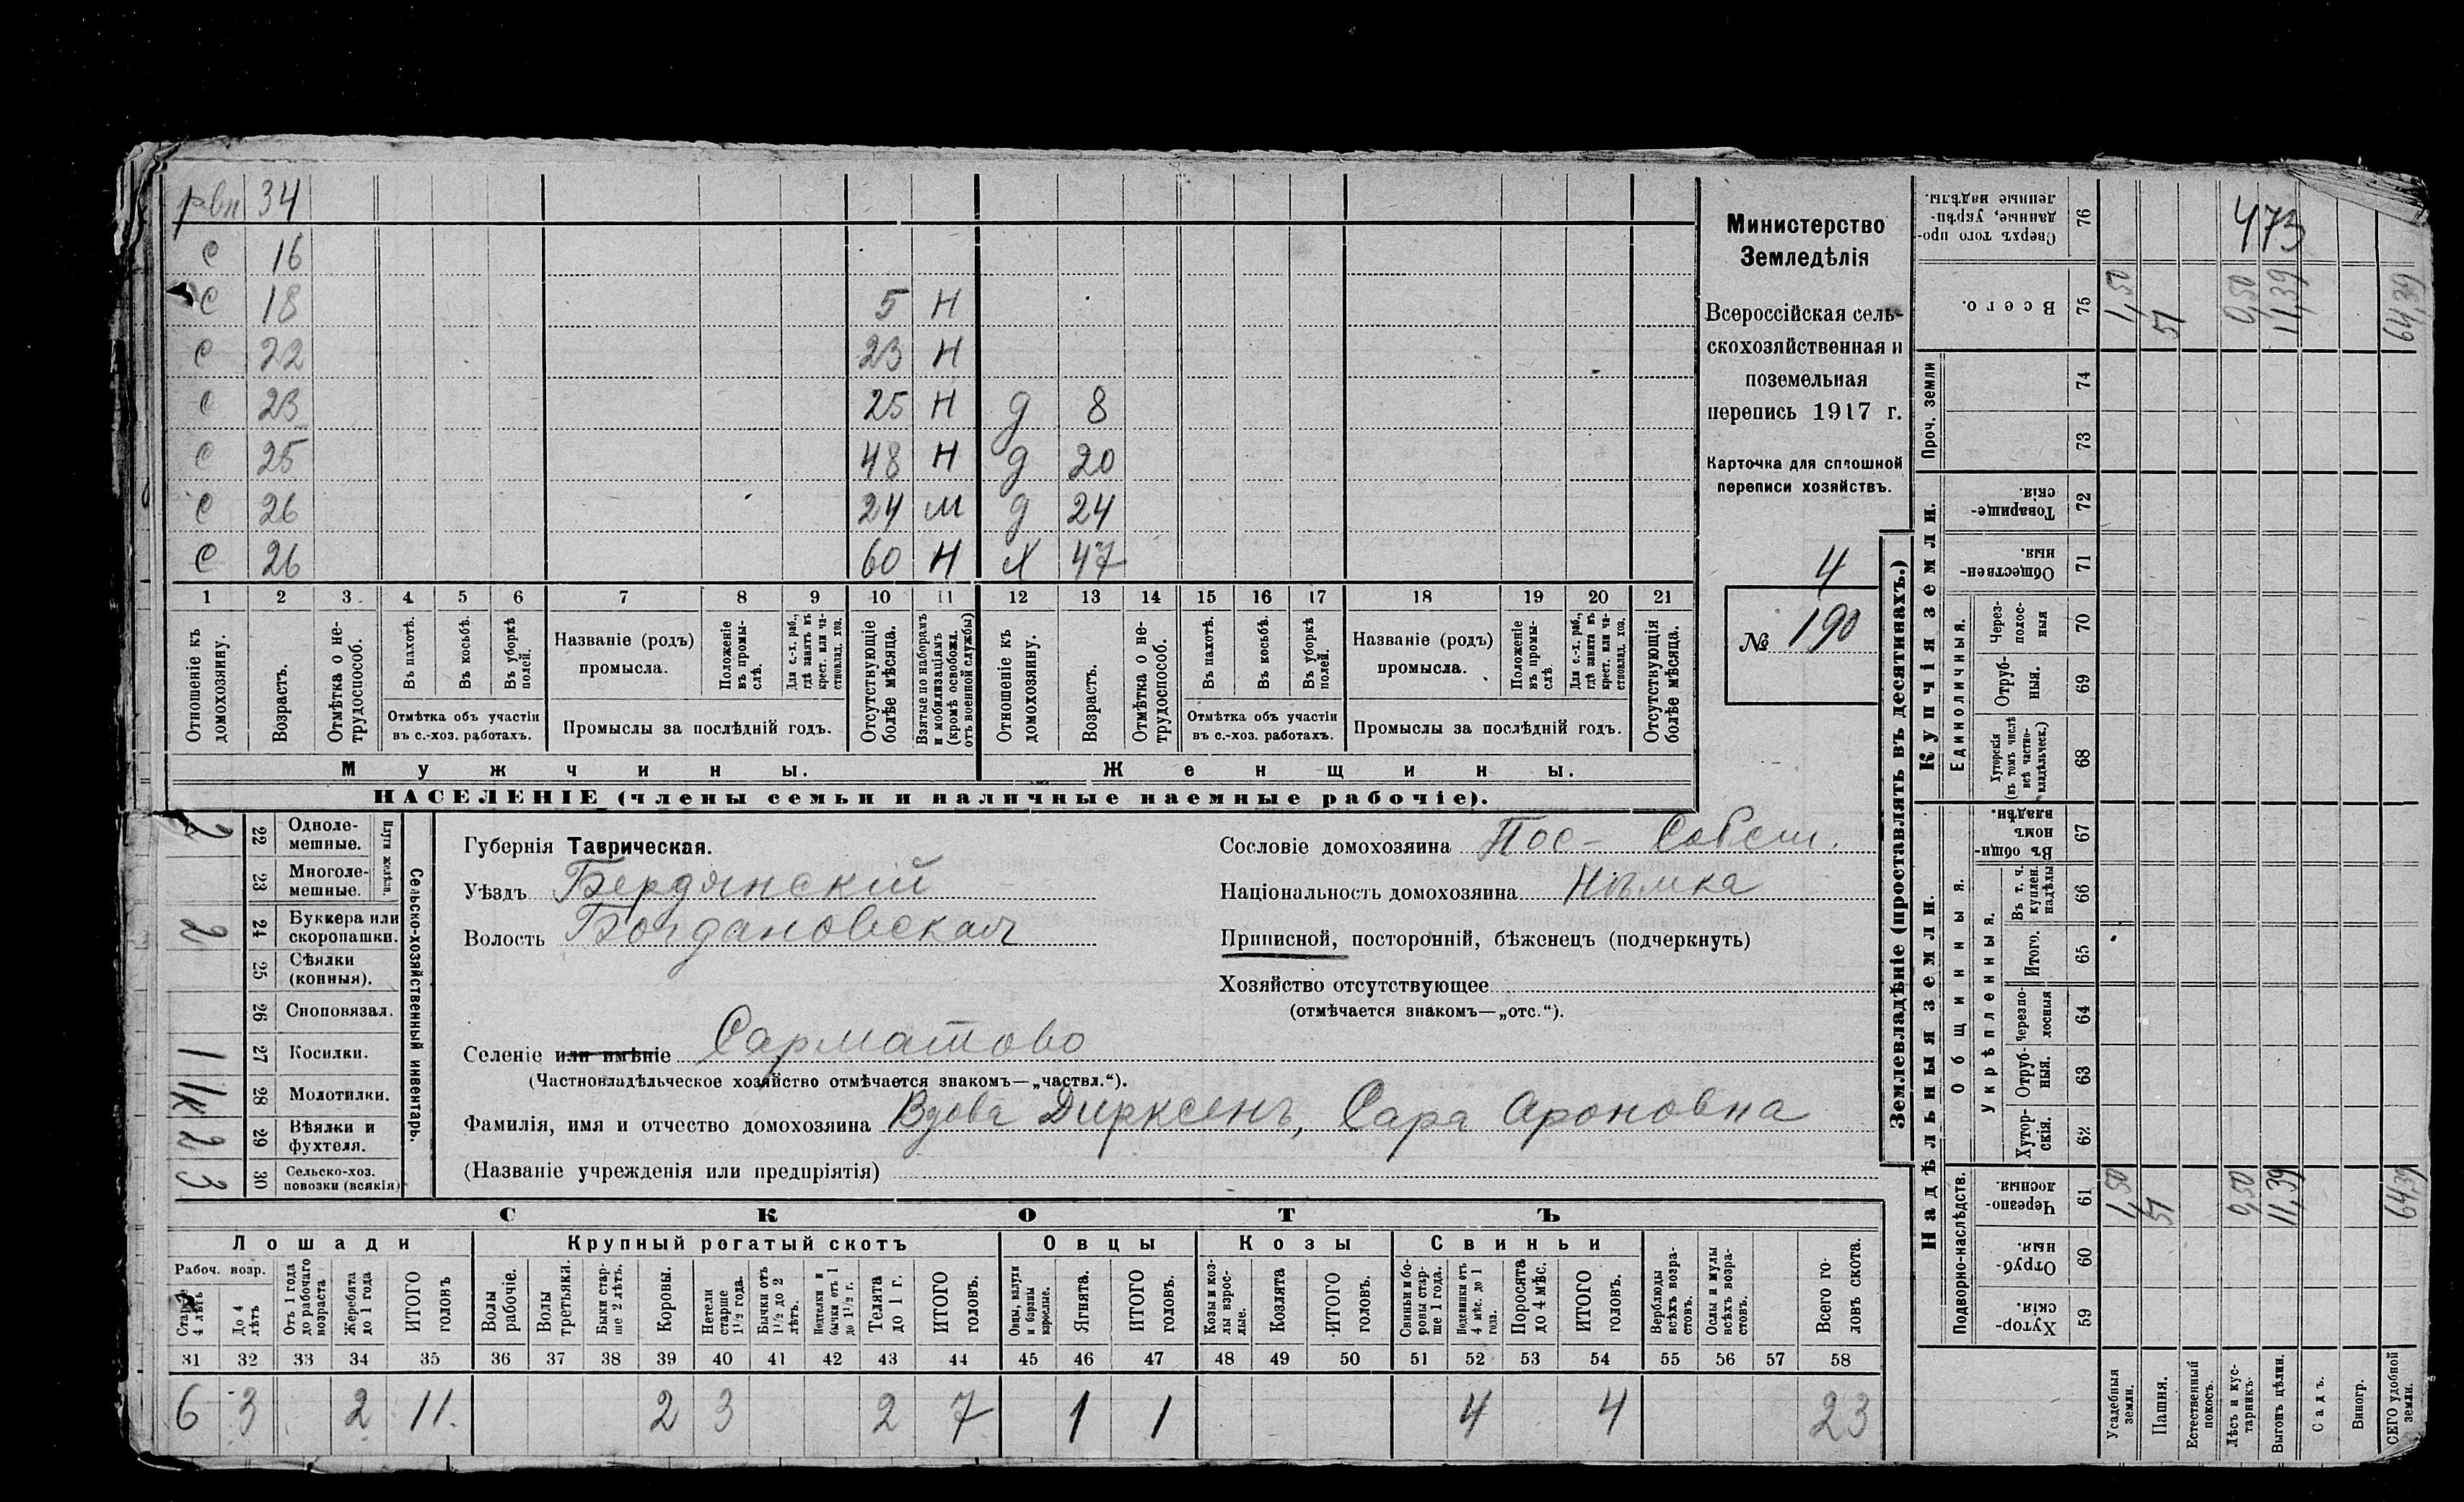 рвн 34
С 16
С 18 5 Н
С 22 23 Н
С 23 25 Н д 8
С 25 48 Н д 20
С 26 24 м д 24
С 26 60 Н х 47
1 2 3 4 5 6 7 8 9 10 11 12 13 14 15 16 17 18 19 20 21
Отношеніе къ домохозяину.
Возрастъ.
Отмѣтка о не-трудоспособ.
Въ пахотѣ.
Въ косьбѣ.
Въ уборкѣ полей.
Отмѣтка объ участіи въ с.-хоз. работахъ.
Названіе (родъ) промысла.
Положеніе въ промы-слѣ.
Для с.-х. раб., гдѣ занятъ въ крест. или ча-стновлад. хоз.
Промыслы за послѣдній годъ.
Отсутствующіе болѣе мѣсяца.
Взятые по наборамъ и мобилизаціямъ (кромѣ освобожд. отъ военной службы)
Отношеніе къ домохозяину.
Возрастъ.
Отмѣтка о не-трудоспособ.
Въ пахотѣ.
Въ косьбѣ.
Въ уборкѣ полей.
Отмѣтка объ участіи въ с.-хоз. работахъ.
Названіе (родъ) промысла.
Положеніе въ промы-слѣ
Для с.-х. раб., гдѣ занятъ въ крест. или ча-стновлад. хоз.
Промыслы за послѣдній годъ.
Отсутствующія болѣе мѣсяца.
Мужчины. Женщины.
НАСЕЛЕНІЕ (члены семьи и наличные наемные рабочіе).
Министерство
Земледѣлія
Всероссійская сель-
скохозяйственная и
поземельная
перепись 1917 г.
Карточка для сплошной
переписи хозяйствъ.
4
№ 190
Сельско-хозяйственный инвентарь.
Плуги желѣзн.
2 22 Одноле-мешные.
23 Многоле-мешные.
2 24 Буккера или скоропашки.
25 Сѣялки (конныя).
26 Сноповязал.
1 27 Косилки.
1к 28 Молотилки.
2 29 Вѣялки и фухтеля.
3 30 Сельско-хоз. повозки (всякія)
Губернія Таврическая.
Уѣздъ Бердянскій
Волость Богдановская
Селеніе или имѣніе Сарматово
(Частновладѣльческое хозяйство отмѣчается знакомъ—„частвл.“).
Фамилія, имя и отчество домохозяина Вдова Дирксенъ, Сара Ароновна
(Названіе учрежденія или предпріятія)
Сословіе домохозяина Пос- Собств.
Національность домохозяина Нѣмка
Приписной, посторонній, бѣженецъ (подчеркнуть)
Хозяйство отсутствующее
(отмѣчается знакомъ—„отс.“).
СКОТЪ
Лошади Крупный рогатый скотъ Овцы Козы Свиньи
Рабоч. возр.
Старше 4 лѣтъ
До 4 лѣтъ
Отъ 1 года до рабочаго возраста
Жеребята до 1 года
ИТОГО головъ
Волы рабочіе.
Волы третьяки.
Быки стар-ше 2 лѣтъ.
Коровы.
Нетели старше 1½ года.
Бычки отъ 1½ до 2 лѣтъ.
Подтелки и бычки отъ 1 до 1½ г.
Телята до 1 г.
ИТОГО головъ.
Овцы, валухи и бараны взрослые.
Ягнята.
ИТОГО головъ.
Козы и коз-лы взрос-лые.
Козлята
ИТОГО головъ.
Свиньи и бо-ровы стар-ше 1 года.
Подсвинки отъ 4 мѣс. до 1 года.
Поросята до 4 мѣс.
ИТОГО головъ.
Верблюды всѣхъ возра-стовъ.
Ослы и мулы всѣхъ возра-стовъ.
Всего го-ловъ скота.
31 32 33 34 35 36 37 38 39 40 41 42 43 44 45 46 47 48 49 50 51 52 53 54 55 56 57 58
6 3 2 11. 2 3 2 7 1 1 4 4 23
Землевладѣніе (проставлять въ десятинахъ.)
Надѣльныя земли. Купчія земли. Проч. земли
Подворно-наслѣдств. Общинныя. Укрѣпленныя. Единоличныя.
Сверхъ того про-данные, укрѣп-ленные надѣлы. 76 473
Всего. 75 1,50 51 0,50 11,39 64,39
74
73
Товарище-скія. 72
Обществен-ныя. 71
Через-полос-ныя 70
Отруб-ныя. 69
Хуторскія (въ томъ числѣ всѣ частно-владѣльческ.) 68
Въ общин-номъ владѣн. 67
Въ т. ч. куплен. надѣлы 66
Итого. 65
Черезпо-лосныя 64
Отруб-ныя. 63
Хутор-скія. 62
Черезпо-лосныя. 61 1,50 51 0,50 11,39 64,39
Отруб-ныя. 60
Хутор-скія. 59
Усадебныя земли.
Пашня.
Естественный покосъ.
Лѣсъ и кус-тарникъ.
Выгонъ цѣлин.
Садъ.
Виногр.
СЕГО удобной земли.